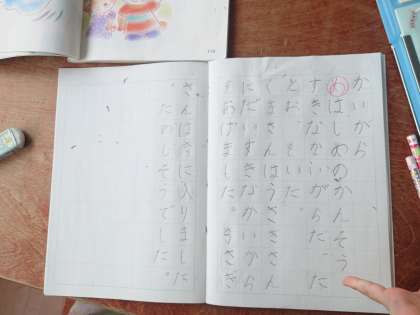 かいがら
はじめのかんそう
すきなかいがらだった
くまさんはうさぎさん
にだいすきなかいがら
をあげました。うさぎ
さんは気に入りました
。たのしそうでした。